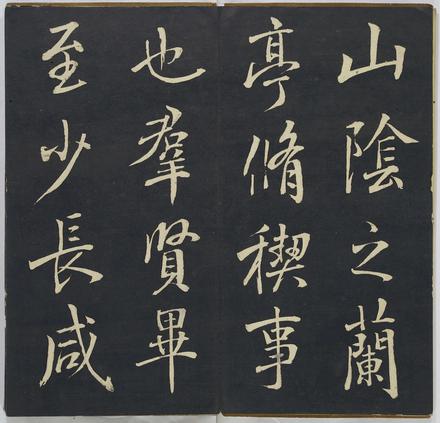 山陰之蘭
亭脩稧事
也羣賢畢
至少長咸